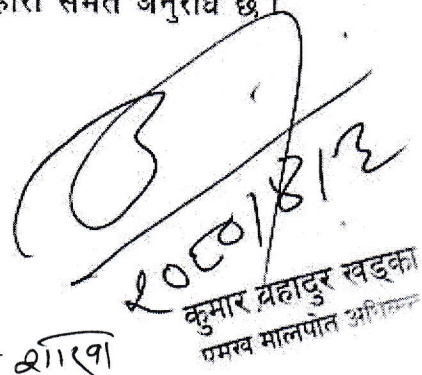 समेत अनुरोध छ।
२०८०।४।३
कुमार बहादुर खड्का
प्रमुख मालपोत
शाखा